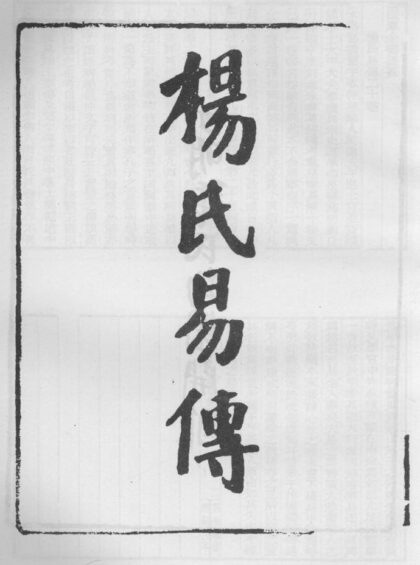 楊氏易傳